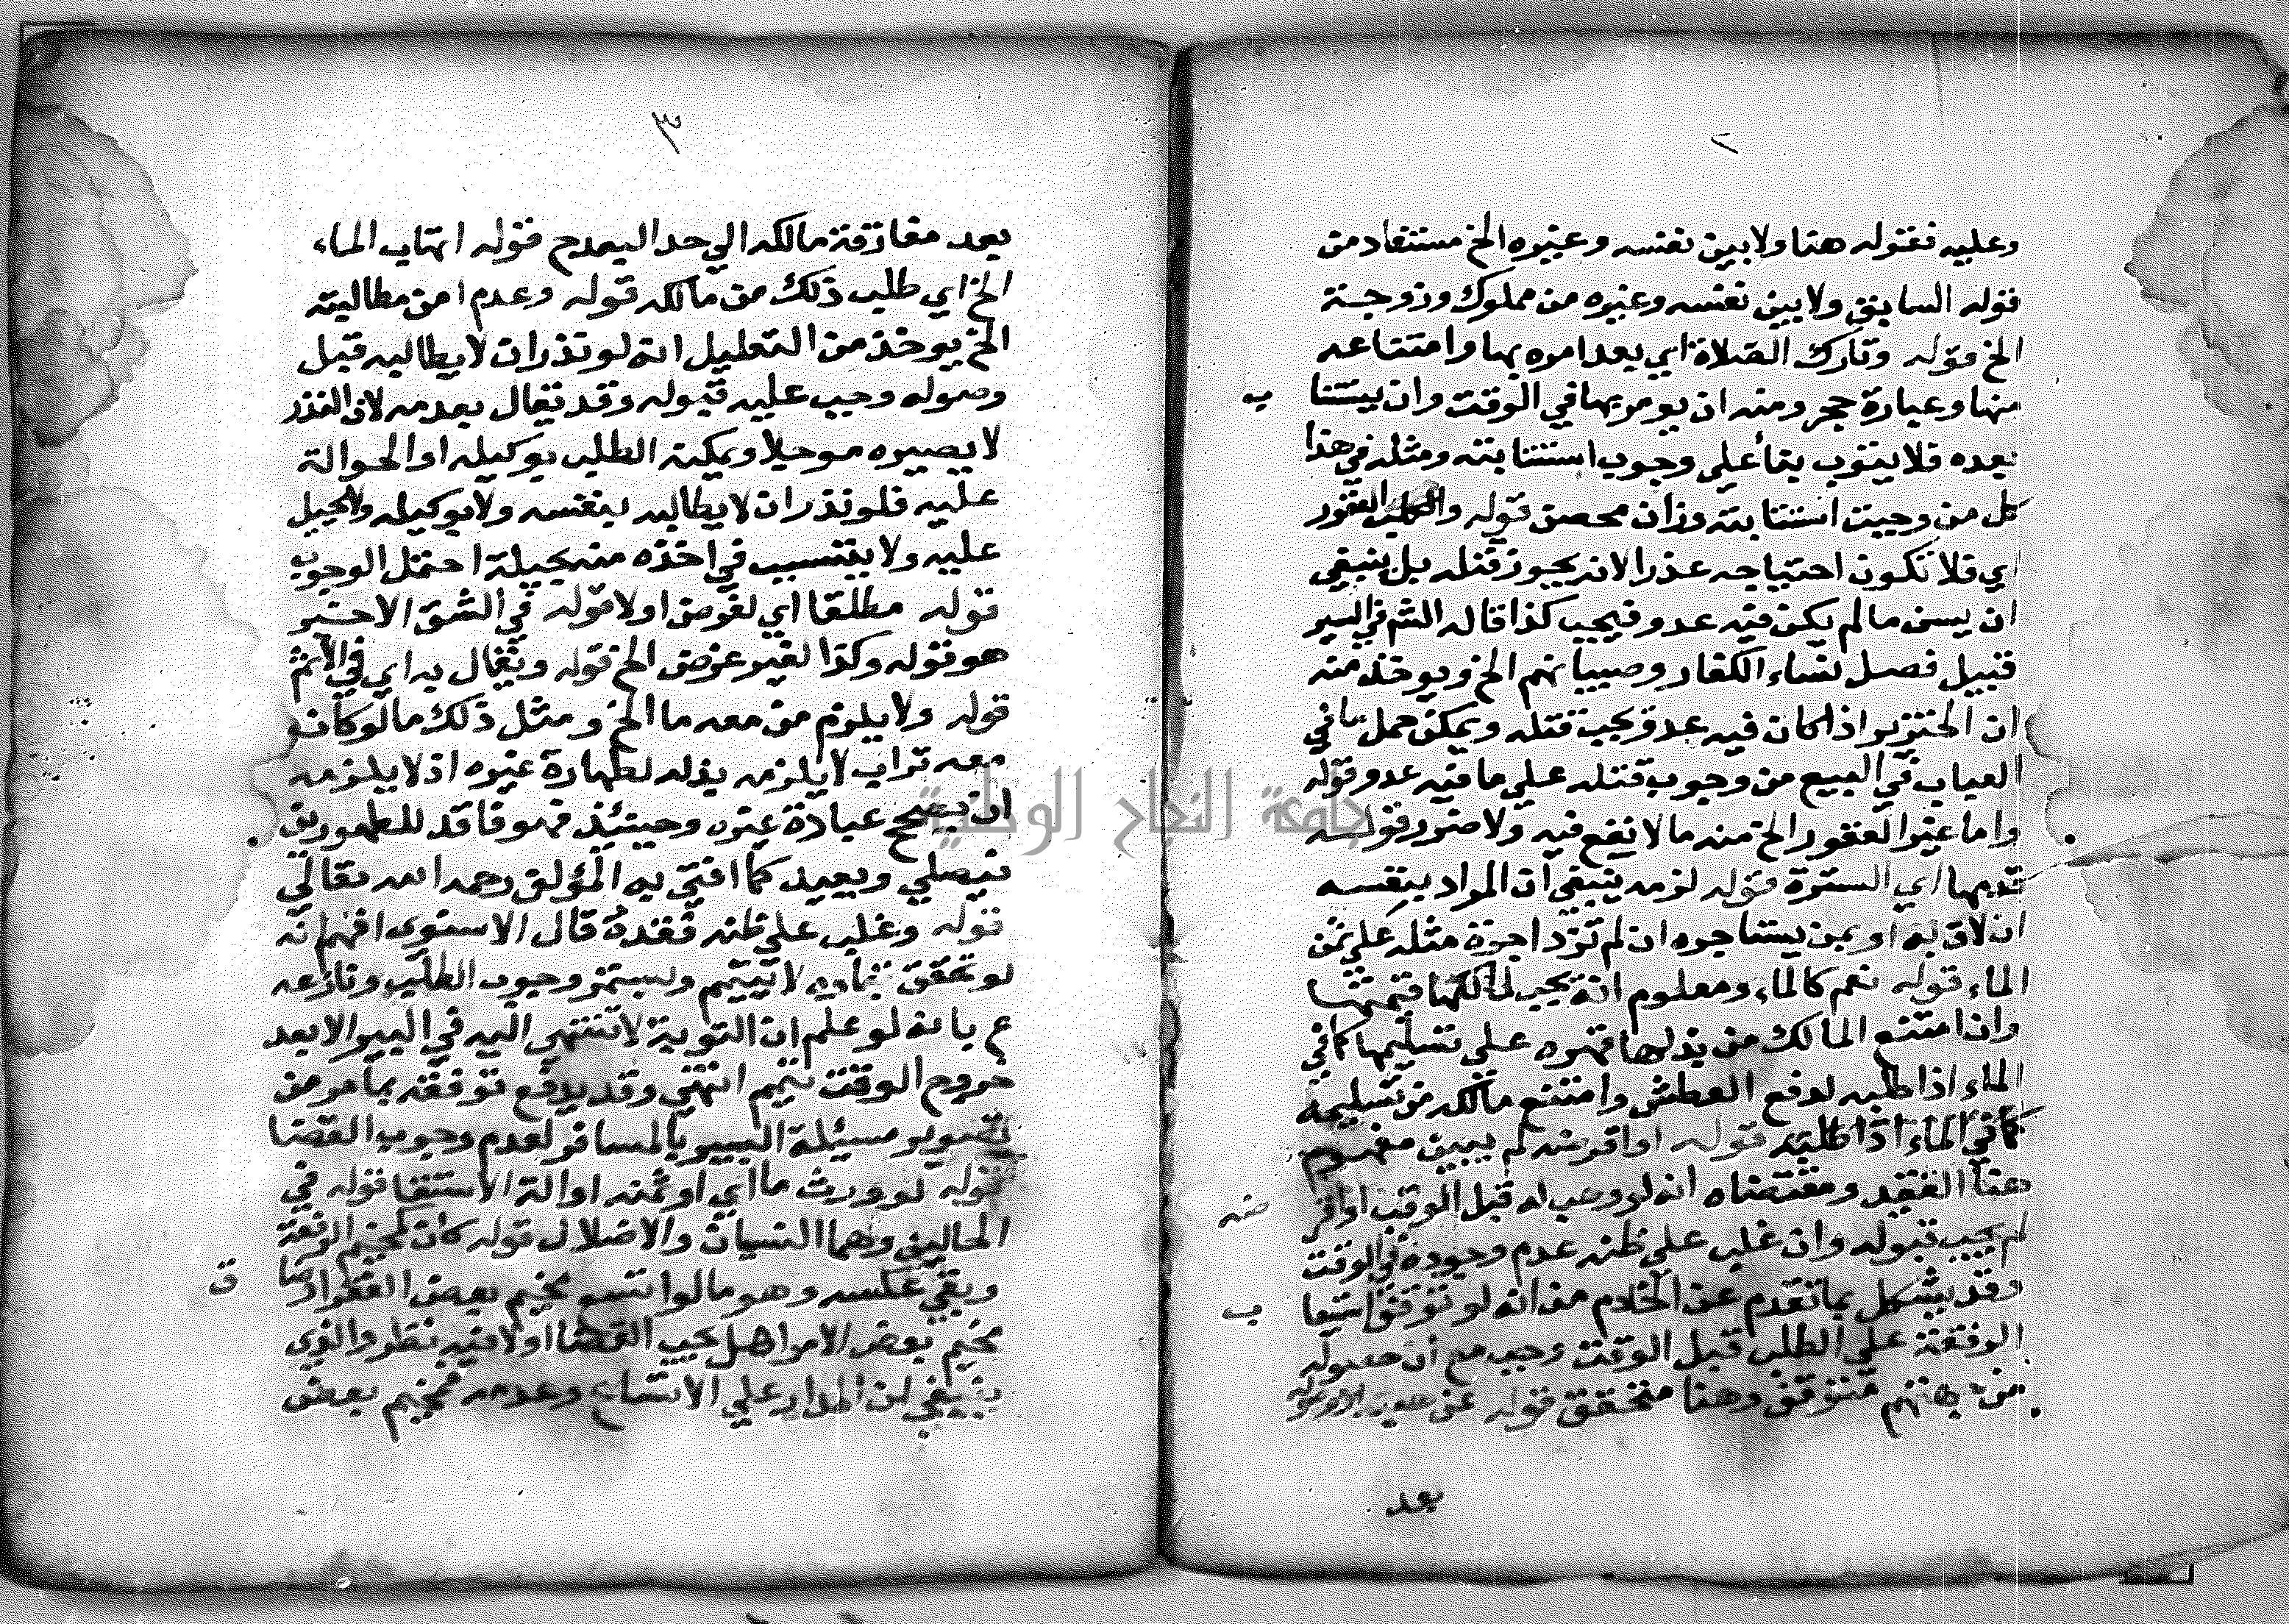 ٢
وعليه فقوله هنا ولا بين نفسه وغيره الخ مستفاد من
قوله السابق ولا بين نفسه وغيره من مملوك وزوجة
الخ قوله وتارك الصلاة اي بعد امره بها وامتناعه
منها وعبارة حجر ومنه ان يومر بها في الوقت وان يستتا
ب
بعده فلا يتوب بنا علي وجوب استتابته ومثله في هذا
كل من وجبت استتابته وزان محصن قوله والكلب العقور
اي فلا تكون احتياجه عذرا لانه يجوز قتله بل ينبغي
ان يسن ما لم يكن فيه عدو فيجب كذا قاله الشم في السير
قبيل فصل نساء الكفار وصبيانهم الخ ويوخذ منه
ان الخنزير اذا كان فيه عدو يجب قتله ويمكن حمل ما في
العباب في البيع من وجوب قتله علي ما فيه عدو قوله
واما غير العقور الخ منه ما لا نفع فيه ولا ضرر قوله
قدمها اي السترة قوله لزمه ينبغي ان المراد بنفسه
ان لاق به او بمن يستاجره ان لم تزد اجرة مثله علي ثمن
الماء قوله نعم كالماء ومعلوم انه يجب لمالكها قيمتها
وان امتنع المالك من بذلها قهره علي تسليمها كما في
الماء اذا طلبه لدفع العطش وامتنع مالكه من تسليمه
كما في الماء اذا طلبه قوله او اقرضه لم يبين مفهوم
هنا الفقد ومقتضاه انه لو وهب له قبل الوقت او اقر
ضه
لم يجب قبوله وان غلب علي ظنه عدم وجوده في الوقت
وقد يشكل بما تقدم عن الخادم من انه لو توقف استيعا
ب
الرفقة علي الطلب قبل الوقت وجب مع ان حصوله
من متوقف وهنا متحقق قوله عن
بعد
٣
بعد مفارقة مالكه الي حد البعد ح قوله اتهاب الماء
الخ اي طلب ذلك من مالكه قوله وعدم امن مطالبته
الخ يوخذ من التعليل انه لو نذر ان لا يطالبه قبل
وصوله وجب عليه قبوله وقد يقال بعدمه لان النذر
لا يصيره موجلا ويمكنه الطلب بوكيله او الحوالة
عليه فلو نذر ان لا يطالبه بنفسه ولا بوكيله ولا يحيل
عليه ولا يتسبب في اخذه منه بحيلة احتمل الوجوب
قوله مطلقا اي لغرض او لا قوله في الشق الاخير
هو قوله وكذا لغير غرض الخ قوله ويقال به اي في الاثم
قوله ولا يلزم من معه ما الخ ومثل ذلك ما لو كان
معه تراب لا يلزمه بذله لطهارة غيره اذ لا يلزمه
ان يصحح عبادة غيره وحينئذ فهو فاقد للطهورين
فيصلي ويعيد كما افتي به المؤلف رحمه الله تعالي
قوله وغلب علي ظنه فقده قال الاسنوي افهم انه
لو تحقق لا يتيمم ويستمر وجوب الطلب ونازعه
ع بانه لو علم ان النوبة لا تنتهي اليه في البير الا بعد
خروج الوقت تيمم انتهي وقد يدفع توقفه بما مر من
تصوير مسئلة البير بالمسافر لعدم وجوب القضا
قوله لو ورث ما اي او ثمنه او الة الاستقا قوله في
الحالين وهما النسيان والاضلال قوله كان مخيم الرفقة
وبقي عكسه وهو ما لو اتسع مخيم بعض الفقراء وضا
ق
مخيم بعض الامرا هل يجب القضا او لا فيه نظر والذي
ينبغي ان المدار علي الاتساع وعدمه فمخيم بعض
جامعة النجاح الوطنية